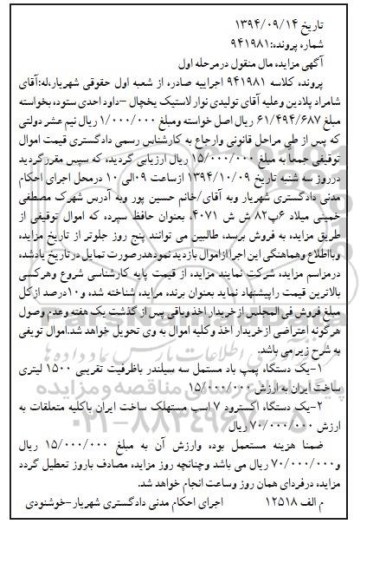 تاریخ ۱۳۹۴/۰۹/۱۴
شماره پرونده:۹۴۱۹۸۱
آگهی مزایده مال منقول درمرحله اول
پرونده کلاسه ۹۴۱۹۸۱ اجراییه صادره از شعبه اول حقوقی شهریار،له:آقای
شامراد پلادین وعلیه آقای تولیدی نوار لاستیک یخچال –داود احدی ستوده بخواسته
مبلغ ۶۱/۴۹۴/۶۸۷ ریال اصل خواسته ومبلغ ۱/۰۰۰/۰۰۰ ریال نیم عشر دولتی
که پس از طی مراحل قانونی وارجاع به کارشناس رسمی دادگستری قیمت اموال
توقیفی جمعاً به مبلغ ۱۵/۰۰۰/۰۰۰ ریال ارزیابی گردیده که سپس مقرر گردید
درروز سه شنبه تاریخ ۱۳۹۴/۱۰/۰۹ ازساعت ۰۹الی ۱۰ درمحل اجرای احکام
مدنی دادگستری شهریار وبه آقای/خانم حسین پور وبه آدرس شهرک مصطفی
خمینی میلاد ۶پ۸۲ ش ش ۴۰۷۱، بعنوان حافظ سپرده که اموال توقیفی از
طریق مزایده به فروش برسد، طالبین می توانند پنج روز جلوتر از تاریخ مزایده
وبااطلاع وهماهنگی این اجرا ازاموال بازدید نمودهدرصورت تمایل در تاریخ یادشده
درمزاسم مزایده شرکت نمایند مزایده از قیمت پایه کارشناسی شروع وهرکسی
بالاترین قیمت راپیشنهاد نماید بعنوان برنده مزایده شناخته شده و۱۰درصد ازکل
مبلغ فروش فی المجلس ازخریدار اخذ وباقی پس از گذشت یک هفته وعدم وصول
هرگونه اعتراضی ازخریدار اخذ وکلیه اموال به وی تحویل خواهد شد.اموال توقیفی
به شرح زیر می باشد.
۱–یک دستگاه پمپ باد مستمل سه سیلندر باظرفیت تقریبی ۱۵۰۰ لیتری
ساخت ایران به ارزش ۱۵/۰۰۰/۰۰۰
۲–یک دستگاه اکسترود ۷ اسب مستهلک ساخت ایران باکلیه متعلقات به
ارزش ۷۰/۰۰۰/۰۰۰ ریال
ضمنا هزینه مستعمل بوده وارزش آن به مبلغ ۱۵/۰۰۰/۰۰۰ ریال
و۷۰/۰۰۰/۰۰۰ ریال می باشد وچنانچه روز مزایده مصادف باروز تعطیل گردد
مزایده درفردای همان روز وساعت انجام خواهد شد.
م الف ۱۲۵۱۸ اجرای احکام مدنی دادگستری شهریار–خوشنودی